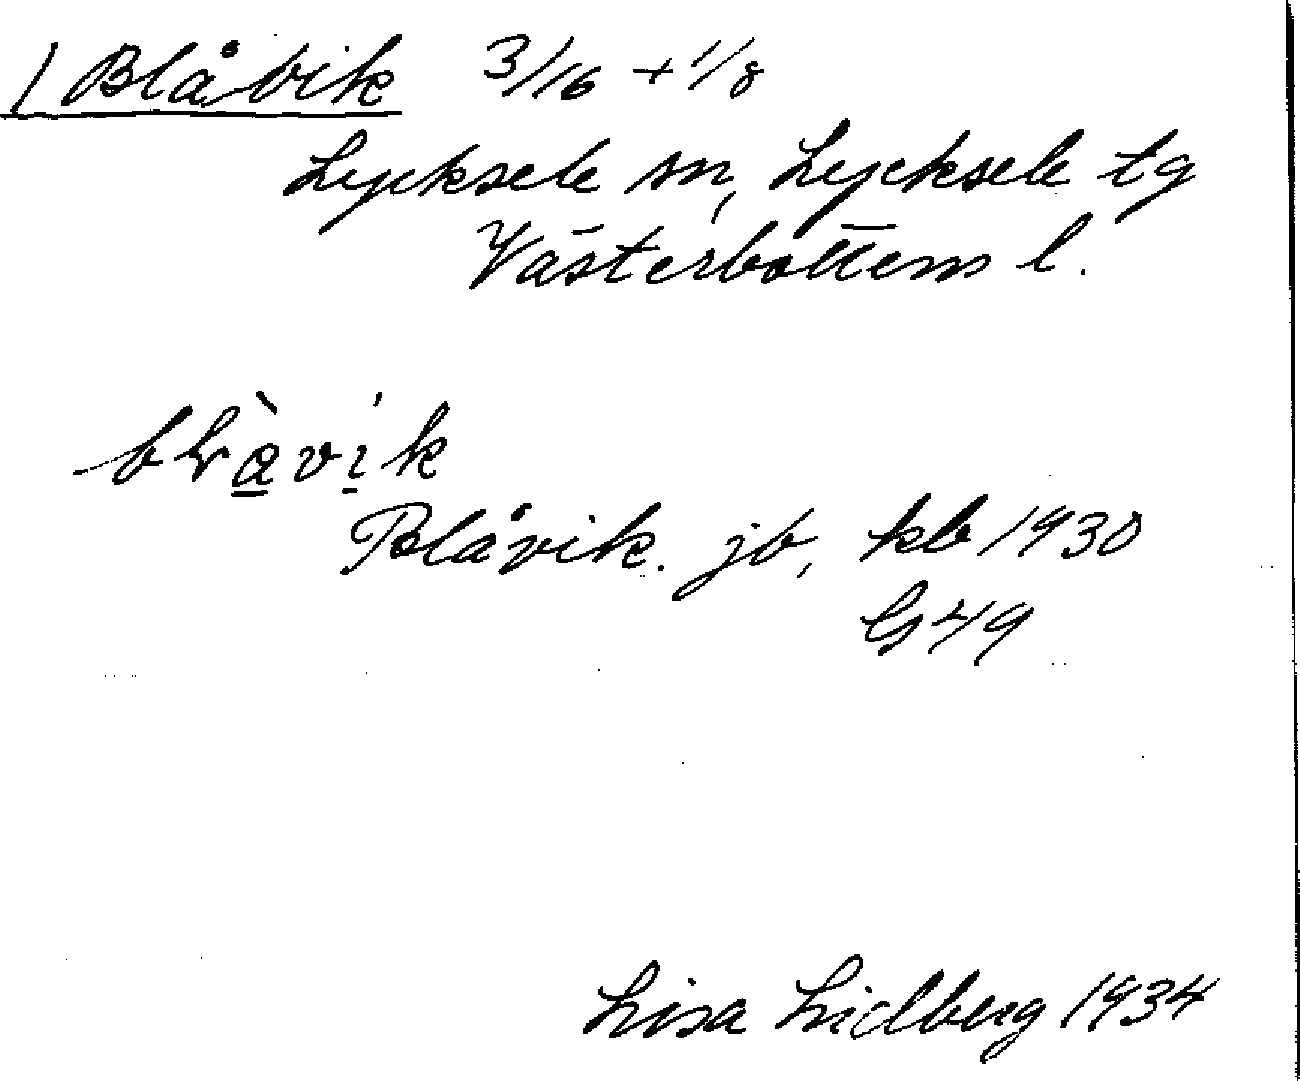 1 Blåvik 3/16 + 1/8
Lycksele sn, Lycksele tg
Västerbottens l.
Blåvik. jb, kb 1930
G 49
Lisa Lidberg 1934